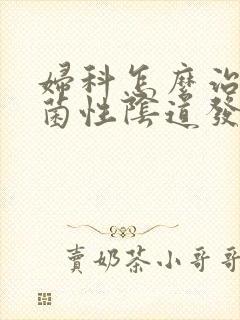 婦科怎麼治
菌性陰道發
賣奶茶小哥哥